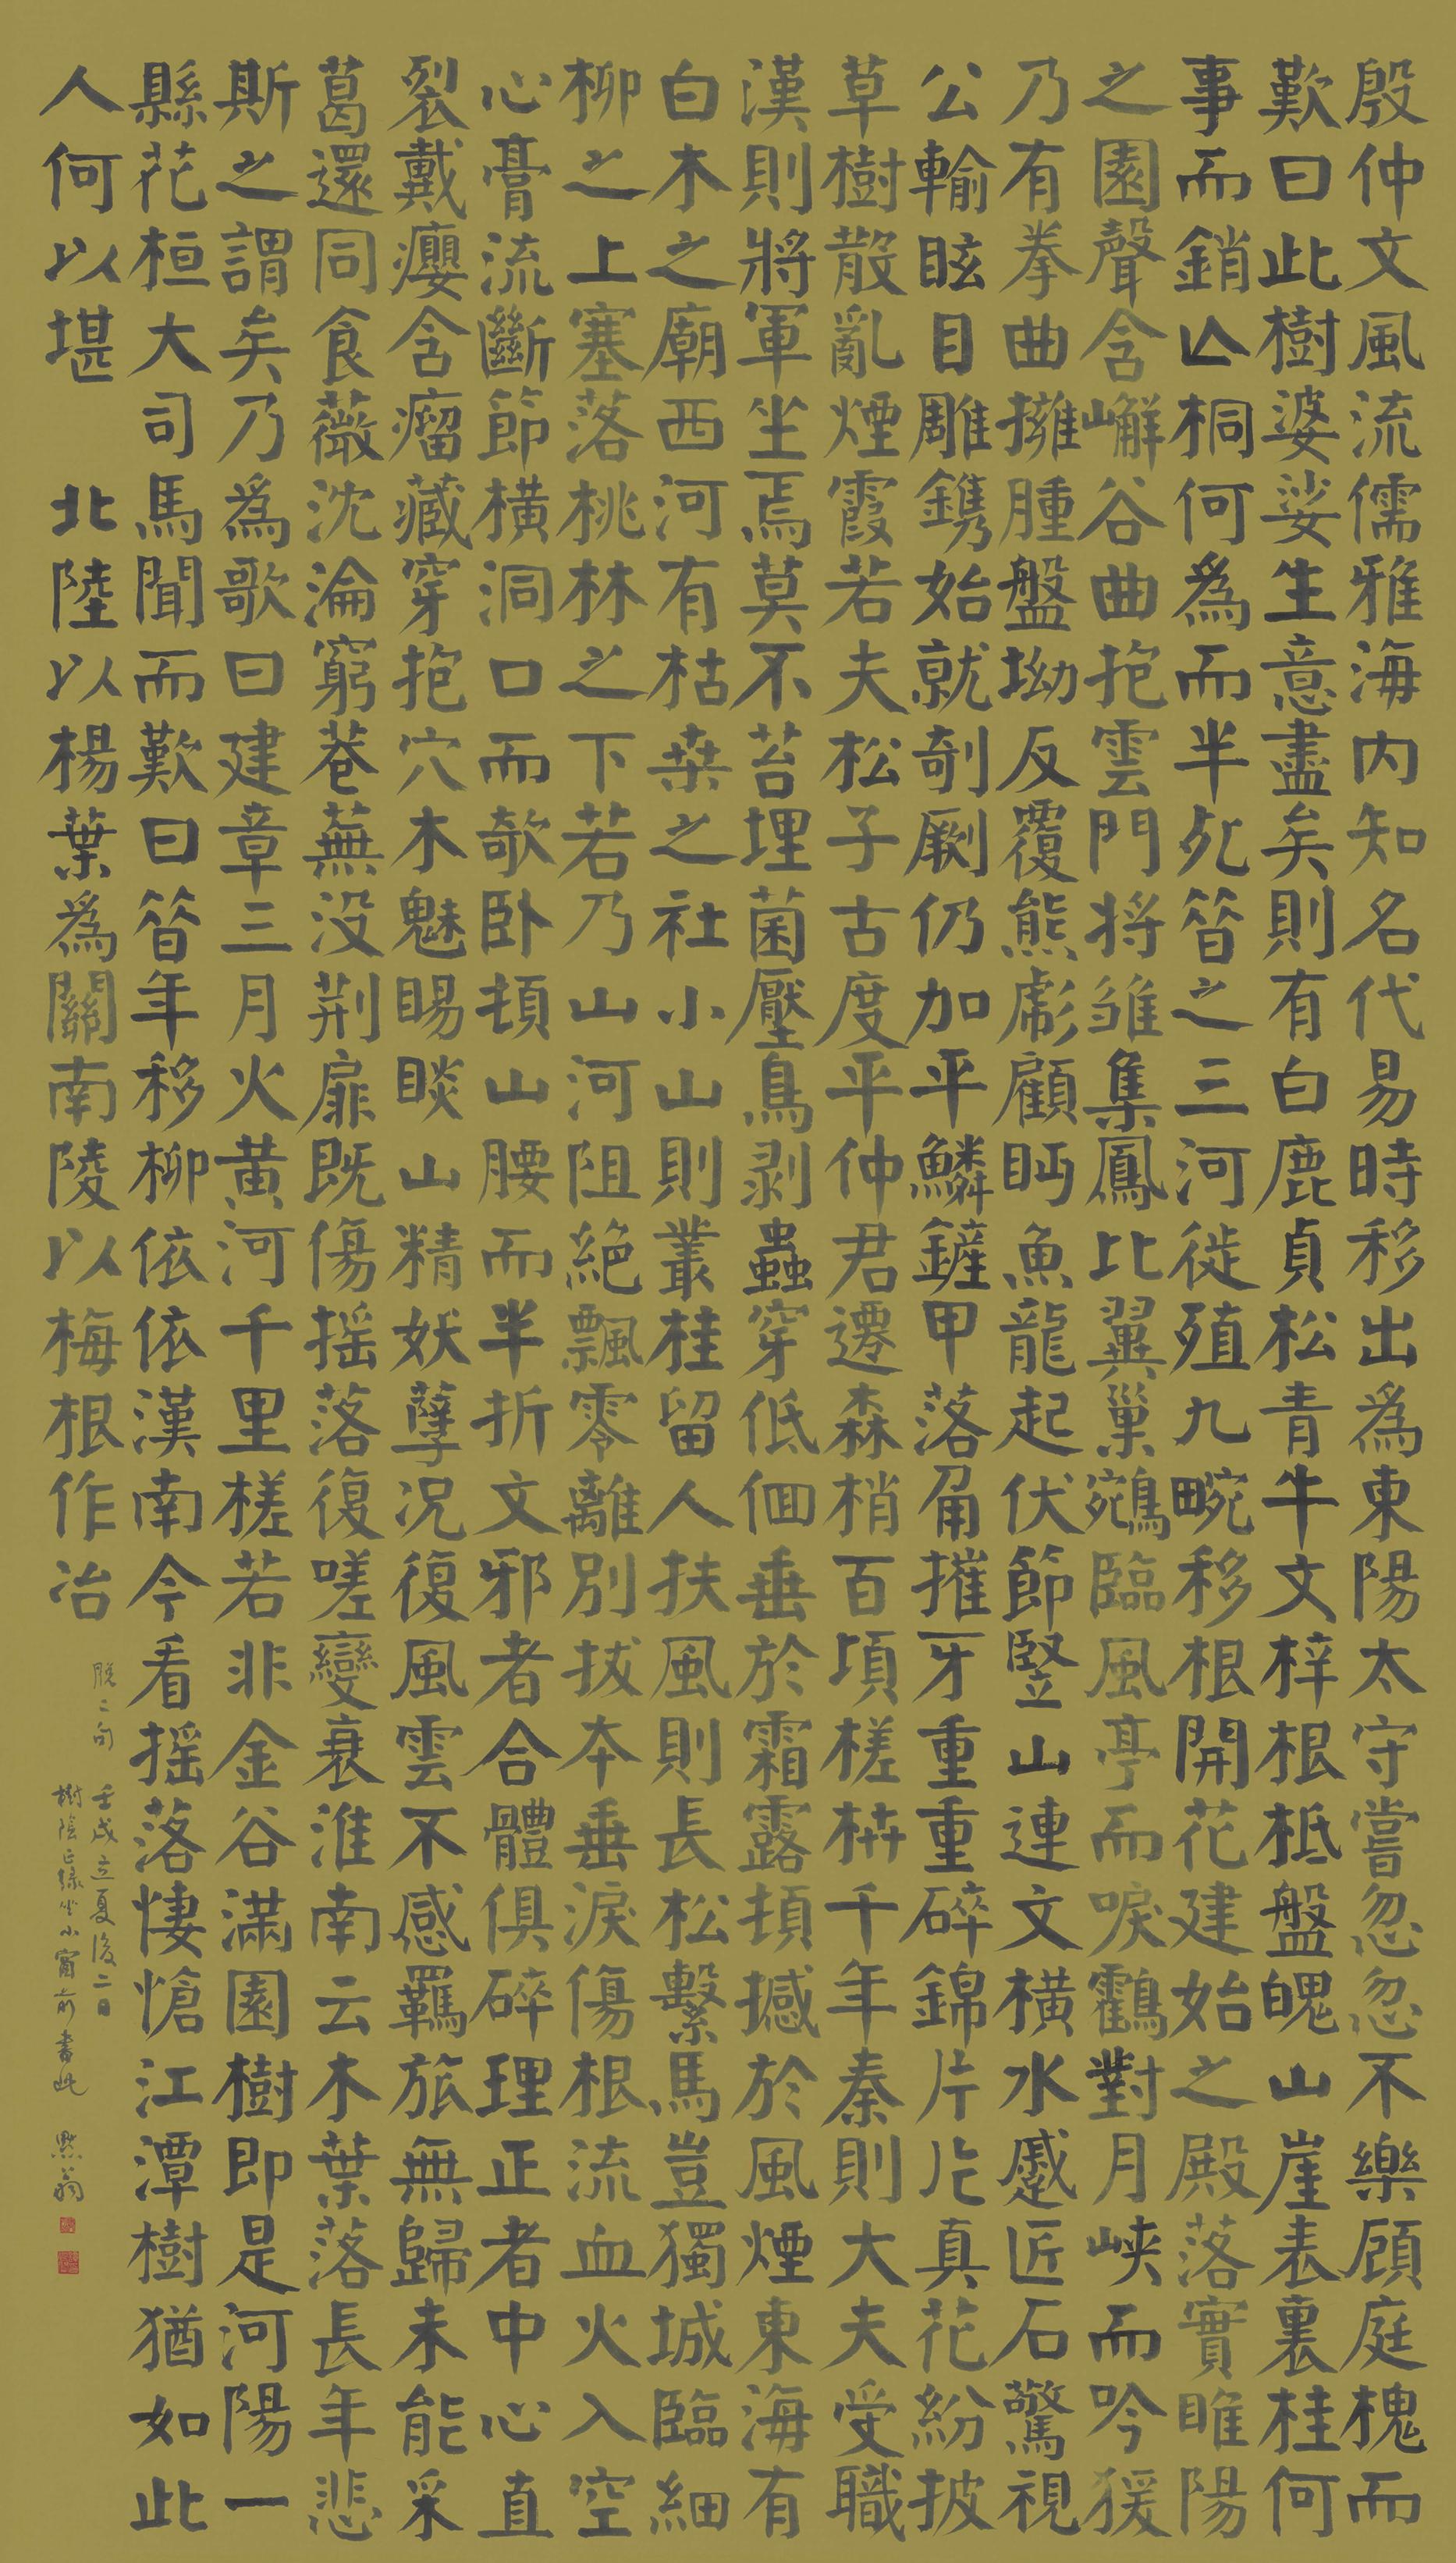 殷仲文風流儒雅海内知名代易時移出爲東陽太守嘗忽忽不樂顧庭槐而
歎曰此樹婆娑生意盡矣則有白鹿貞松青牛文梓根柢盤魄山崖表裏桂何
事而銷亾桐何爲而半死昝之三河徙殖九畹移根開花建始之殿落實睢陽
之園聲含嶰谷曲抱雲門将雏集鳳比翼巢鵷臨風亭而唳鸖對月峡而吟猨
乃有拳曲擁腫盤坳反覆熊彪顧眄魚龍起伏節竪山連文横水蹙匠石驚視
公輸眩目雕鎸始就剞劂仍加平鱗鏟甲落角摧牙重重碎錦片片真花紛披
草樹散亂煙霞若夫松子古度平仲君遷森梢百頃槎枿千年秦則大夫受職
漢則將軍坐焉莫不苔埋菌壓鳥剥蟲穿低佪垂於霜露頓撼於風煙東海有
白木之廟西河有枯桒之社小山則叢桂留人扶風則長松繫馬豈獨城臨細
柳之上塞落桃林之下若乃山河阻絶飄零離別拔夲垂淚傷根流血火入空
心膏流斷節横洞口而欹卧頓山腰而半折文邪者合體俱碎理正者中心直
裂戴癭含瘤藏穿抱穴木魅睗睒山精妖孽况復風雲不感羈旅無歸未能采
葛還同食薇沈淪窮巷蕪没荆扉既傷摇落復嗟變衰淮南云木葉落長年悲
斯之謂矣乃爲歌曰建章三月火黄河千里槎若非金谷滿園樹即是河陽一
縣花桓大司馬聞而歎曰昝年移柳依依漢南今看摇落悽愴江潭樹猶如此
人何以堪 北陸以楊葉爲關南陵以梅根作冶
脱二句 壬戌立夏後二日
樹陰正緑坐小窗前書此 默翁